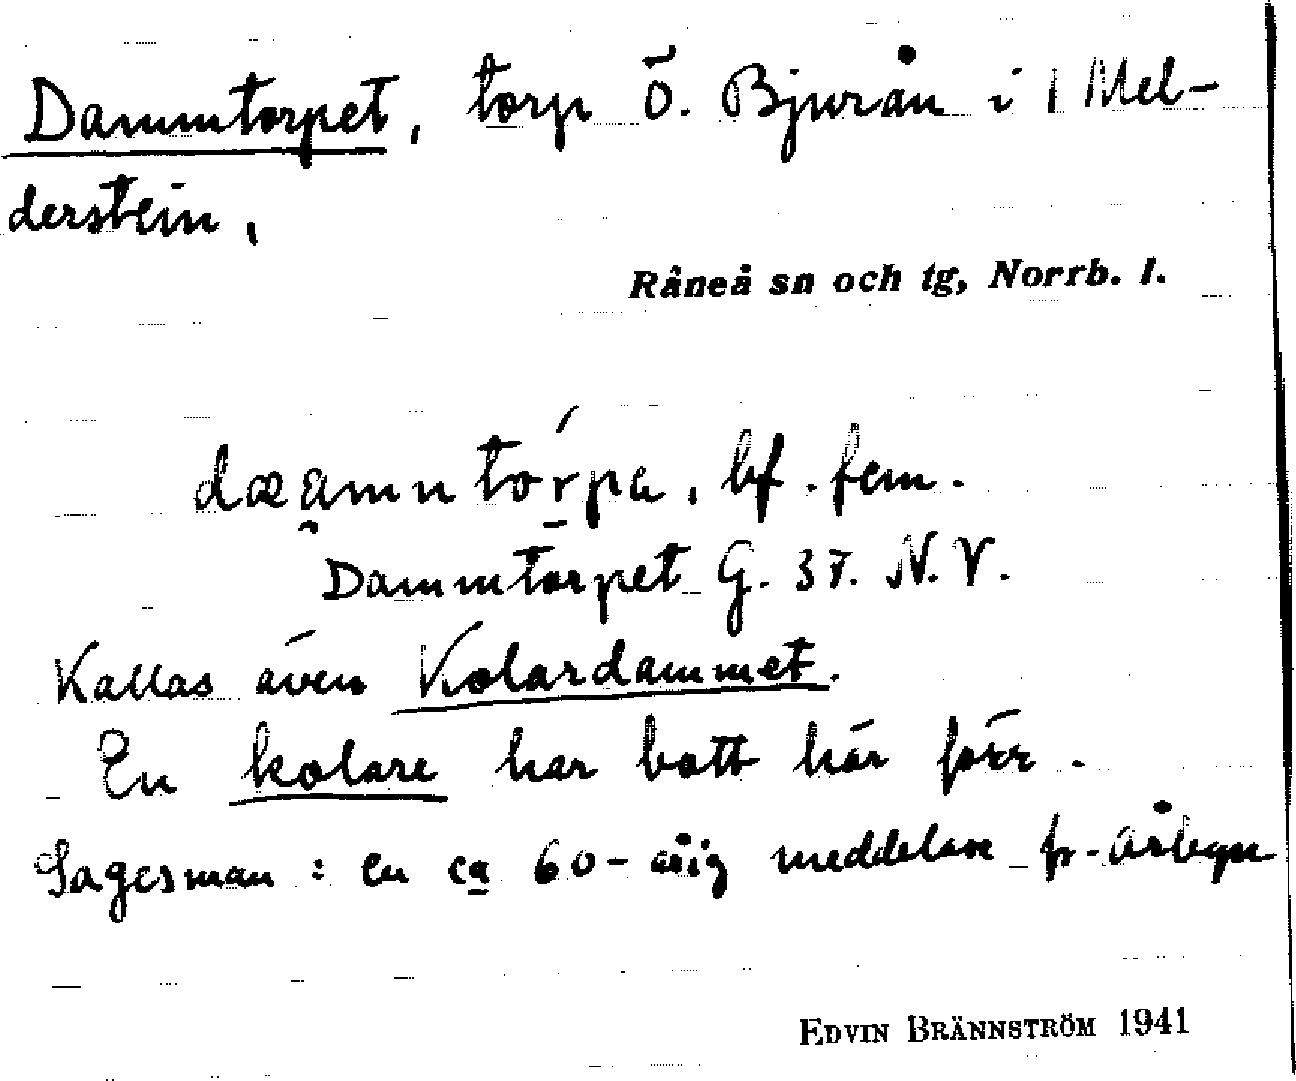 Dammtorpet, torp Ö. Bjurån i 1 Mel-
derstein,
Råneå sn och tg, Norrb. l.
dæamntórpa, bf. fem.
Dammtorpet G. 37. N.V.
Kallas även Kolardammet.
En kolare har bott här förr.
Sagesman: en ca 60-årig meddelare fr. Årbyn
EDVIN BRÄNNSTRÖM 1941